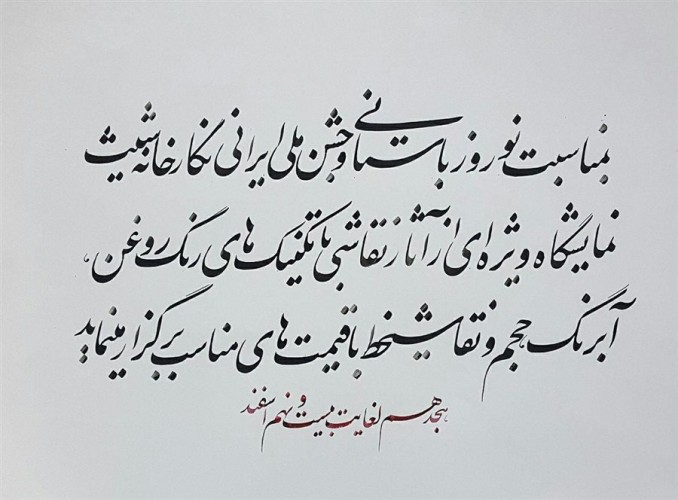 بمناسبت نوروز باستانی و جشن ملی ایرانی نگارخانه شیث
نمایشگاه ویژه ای از آثار نقاشی با تکنیک های رنگ روغن،
آبرنگ حجم و نقاشیخط با قیمت های مناسب برگزار مینماید
هجدهم لغایت بیست و نهم اسفند